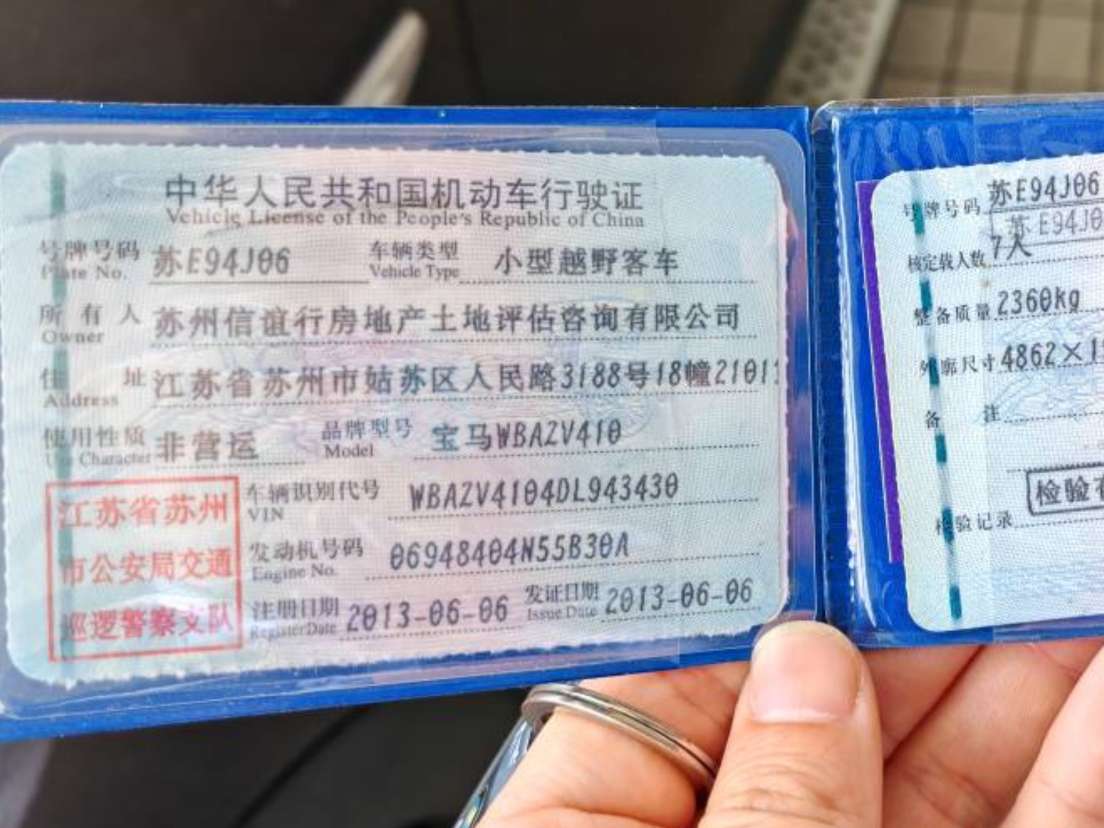 中华人民共和国机动车行驶证
Vehicle License of the People's Republic of China
号牌号码 苏E94J06 车辆类型 小型越野客车
Plate No. Vehicle Type
所有人 苏州信谊行房地产土地评估咨询有限公司
Owner
住址 江苏省苏州市姑苏区人民路3188号18幢2101
Address
使用性质 非营运 品牌型号 宝马WBAZV410
Use Character Model
江苏省苏州
市公安局交通
巡逻警察支队
车辆识别代号 WBAZV4104DL943430
VIN
发动机号码 06948404N55B30A
Engine No.
注册日期 2013-06-06 发证日期 2013-06-06
Register Date Issue Date
号牌号码 苏E94J06
苏E94J0
核定载人数 7人
整备质量 2360kg
外廓尺寸 4862×1
备注
检验记录 检验